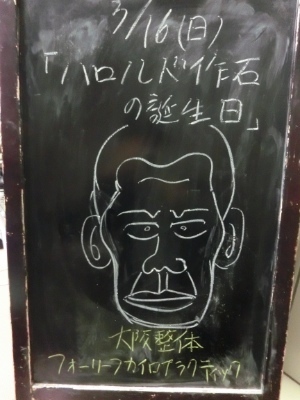 3/16(日)
「ハロルド作石
の誕生日」
大阪整体
フォーリーフカイロプラクティック